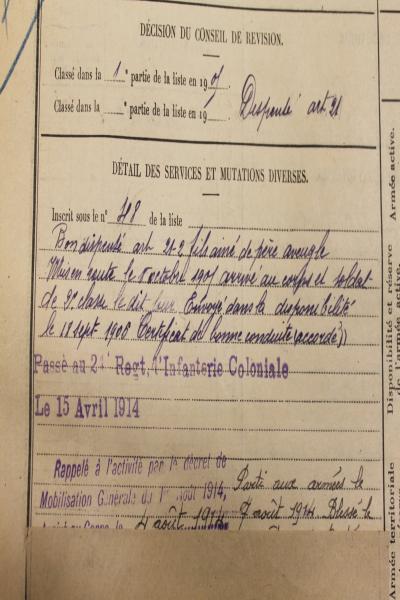 DÉCISION DU CONSEIL DE REVISION.
Classé dans la 1e partie de la liste en 1907.
Classé dans la e partie de la liste en 19 . Dispensé art 21
DÉTAIL DES SERVICES ET MUTATIONS DIVERSES.
Inscrit sous le n° 48 de la liste
Bon dispensé art 21-2 fils ainé de père aveugle
Mis en route le 5 octobre 1907 arrivé au corps et soldat
de 2e classe le dit jour Envoyé dans la disponibilité
le 18 sept 1908 Certificat de bonne conduite (accordé)
Passé au 24e Regt d'Infanterie Coloniale
Le 15 Avril 1914
Rappelé à l'activité par le décret de
Mobilisation Générale du 1er Août 1914,
Parti aux armées le
Arrivé au Corps le 4 août 1914
7 août 1914 Blessé le
Armée active.
Disponibilité et réserve
de l'armée active.
Armée territoriale